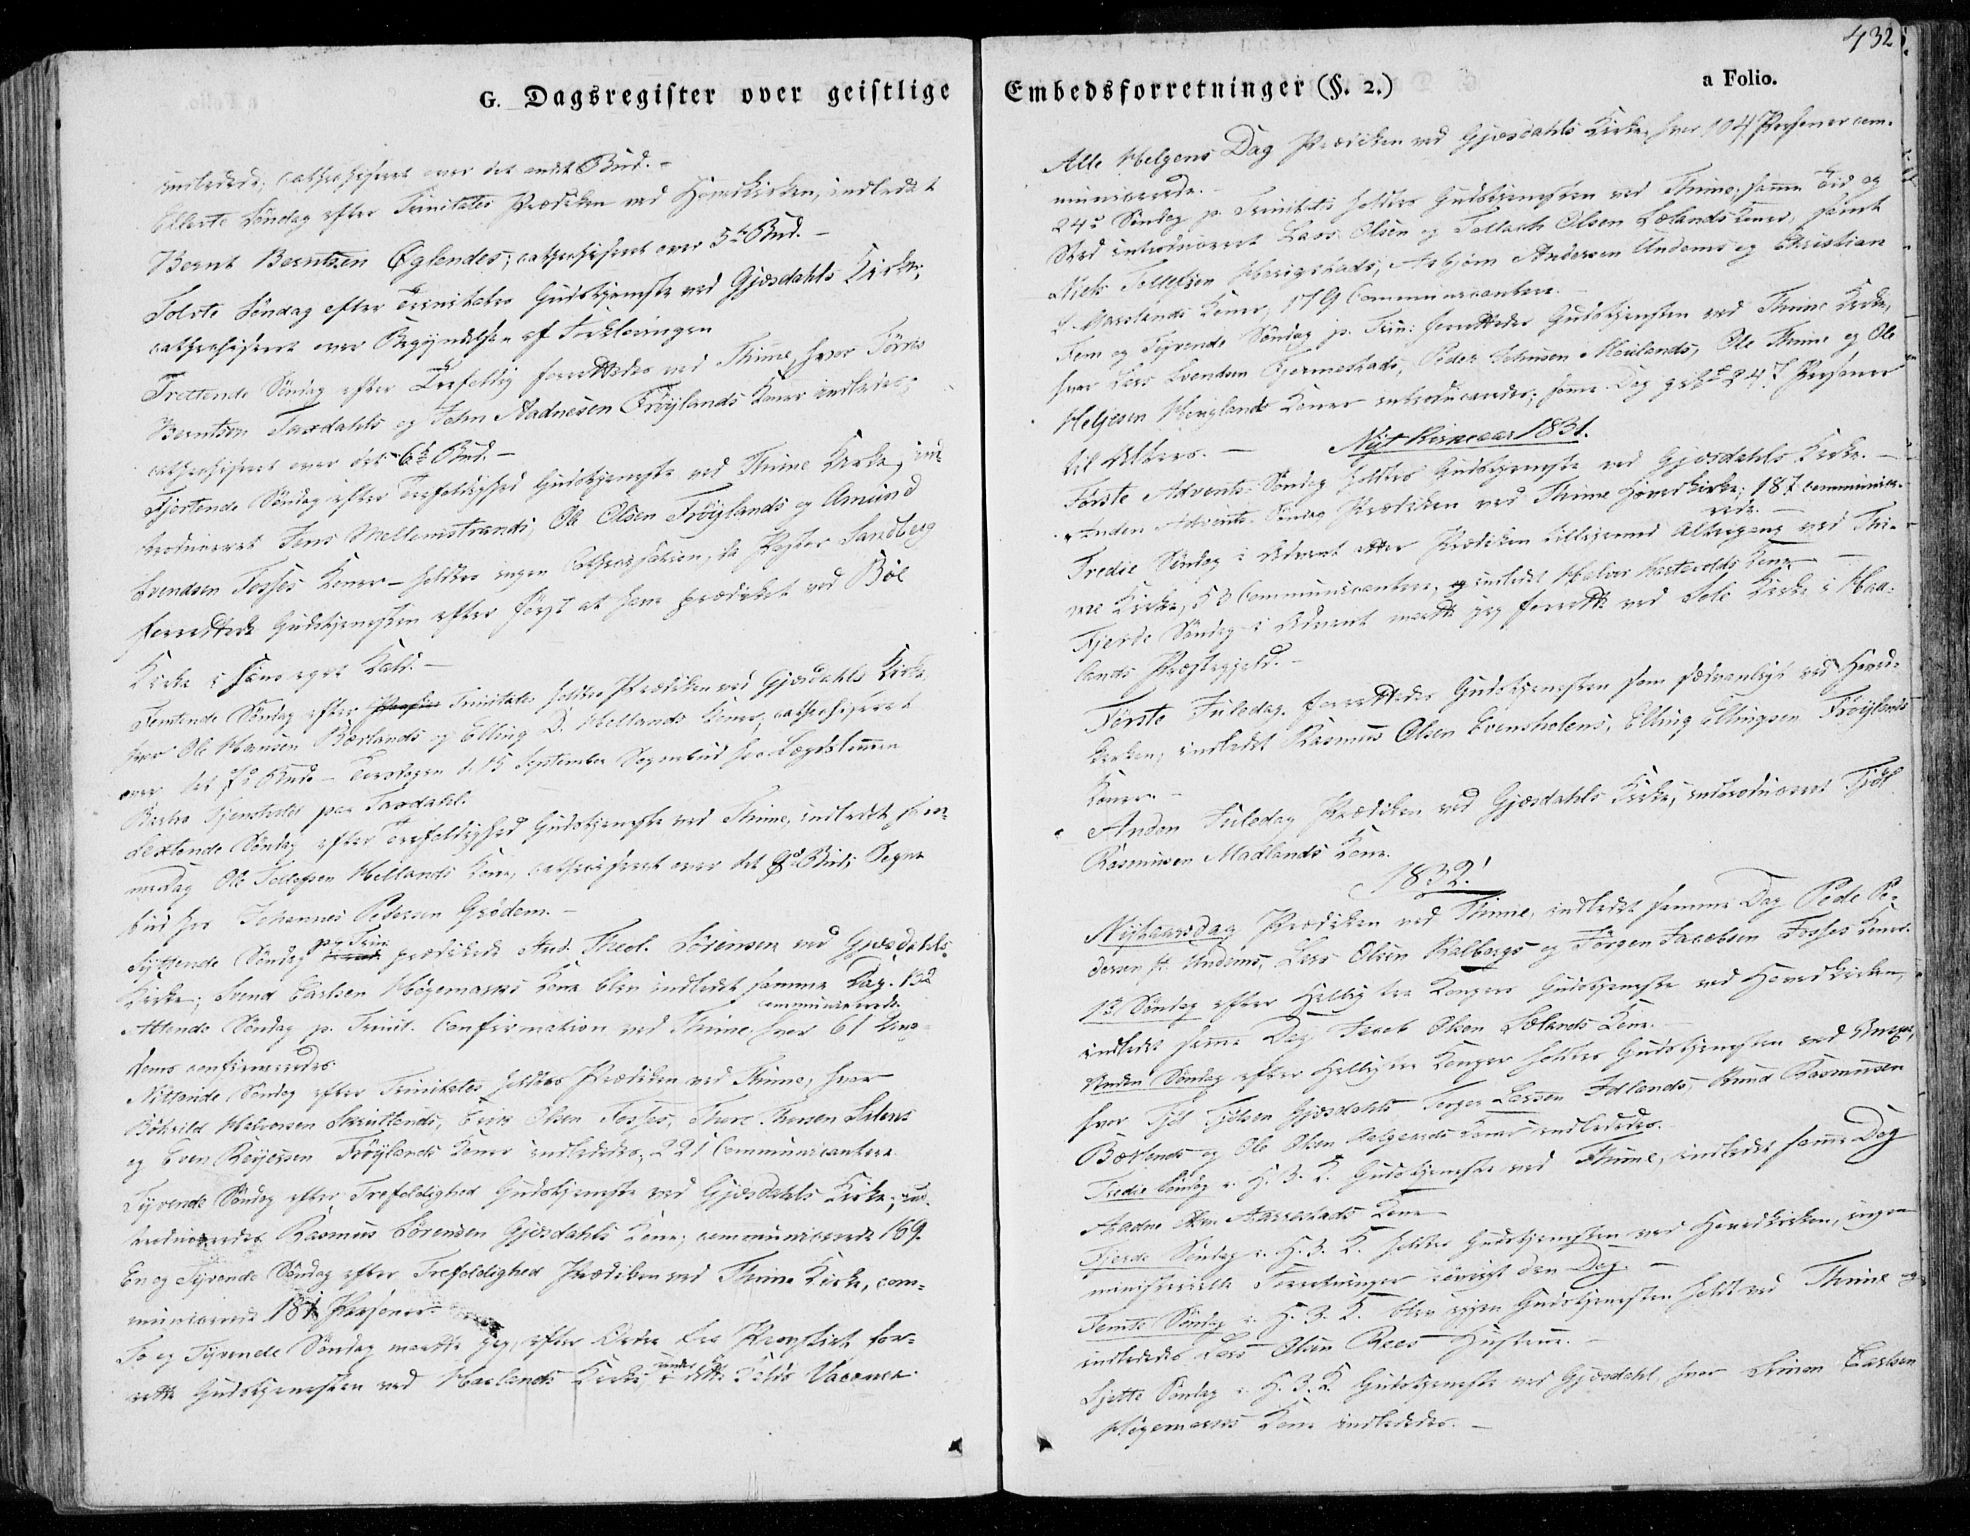 G. Dagsregister over geistlige
indledede; catechiseret over det andet Bud. –
Ellevte Søndag efter Trinitatis Prædiken ved Hovedkirken, indledet
Bernt Berntsen Øglendes; catechiseret over 5te Bud. –
Tolvte Søndag efter Trinitatis Gudstjeneste ved Gjæsdahls Kirke;
catechiseret over Begyndelsen af Forklaringen
Trettende Søndag efter Trefoldig forrettedes ved Thime, hvor Tørres
Berntsen Taxdahls og John Aadnesen Frøylands Koner indledes;
catechiseret over det 6te Bud. –
Fjortende Søndag efter Trefoldighed Gudstjeneste ved Thime Kirke, in-
troduceret Jens Mellemstrands, Ole Olsen Frøylands og Amund
Svendsen Fosses Koner – holdtes ingen Catechisation, da Pastor Sandberg
forrettede Gudstjenesten efter først at have prædiket ved Böe
Kirke i hans eget Kald. –
Femtende Søndag efter Trinitatis holdtes Prædiken ved Gjæsdahls Kirke
hvor Ole Hansen Bærlands og Elling D. Hollands Koner, catechiseret
over det 7de Bud – Torsdagen d. 15 September Sognebud hos Lægdslemmen
Bertha paa Taxdahl.
Sextende Søndag efter Trefoldighed Gudstjeneste ved Thime, indledet sam-
me Dag Ole Tollefsen Hellands Kone, catechiseret over det 8de Bud; Sogne
bud hos Johannes Pedersen Grødem. –
Syttende Søndag p. Trin: prædikede Stud. Theol. Sörensen ved Gjæsdahls
Kirke; Svend Carlsen Høgemarks Kone blev indledet samme Dag. 132
communicerede.
Attende Søndag p. Trinit. Confirmation ved Thime, hvor 61 Ung-
dom confirmeredes.
Nittende Søndag efter Trinitatis holdtes Prædiken ved Thime, hvor
Halvorsen Skrutlands, Erik Olsen Fosses, Thore Thorsen
og Even Reyersen Frøylands Koner indlededes, 221 Communicantere.
Tyvende Søndag efter Trefoldighed Gudstjeneste ved Gjæsdahls Kirke; in-
troduceredes Rasmus Sørensen Gjesdahls Kone; communicerede 169.
En og Tyvende Søndag efter Trefoldighed Prædiken ved Thime Kirke, com-
municerede 187 Personer.
To og Tyvende Søndag maatte jeg, efter Ordre fra Provstiet for-
rette Gudstjenesten ved Haalands Kirke, under dette Kalds Vacance.
432
Embedsforretninger (§. 2.)
a Folio.
Alle Helgens Dag Prædiken ved Gjæsdahls Kirke, hvor 104 Personer com-
municerede. –
24de Søndag p. Trinitatis holdtes Gudstjenesten ved Thime, samme Tid og
Sted introduceret Lars Olsen og Tollach Olsen Lælands Koner, samt
Niels Tollefsen Herigstads, Asbjørn Andersen Undems og Christian
Aasslands Koner, 179 Communicantere.
Fem og Tyvende Søndag p. Trin: forrettedes Gudstjenesten ved Thime Kirke,
hvor Lars Svendsen Gjermestads, Peder Johnsen Moulands, Ole Thime og Ole
Helgesen Høylands Koner introduceredes; samme Dag gik 247 Personer
til Alters. – Nyt Kirkeaar 1831.
Første Advents Søndag holdtes Gudstjeneste ved Gjæsdahls Kirke. –
Anden Advents Søndag Prædiken ved Thime Hovedkirke; 187 communice-
rede. –
Tredie Søndag i Advent atter Prædiken tilligemed Altergang ved Thi-
me Kirke, 53 Communicantere, og indledet Halvor Kone
Fjerde Søndag i Advent maatte jeg forrette ved Sole Kirke i Haa-
lands Præstegjeld. –
Første Juledag forrettedes Gudstjenesten som sædvanligt ved Hoved-
kirken; indledet Rasmus Olsen Evensholens, Elling Ellingsen Frøylands
Koner. –
Anden Juledag Prædiken ved Gjæsdahls Kirke, introduceret Fjel
Rasmussen Madlands Kone.
1832.
Nytaarsdag Prædiken ved Thime, indledet samme Dag Peder Pe-
dersen Undems, Lars Olsen Kalbergs og Jørgen Jacobsen Fosses Koner.
1ste Søndag efter Hellig tre Konger Gudstjeneste ved Hovedkirken,
indledet samme Dag Jacob Olsen Lælands Kone. –
Anden Søndag efter Hellig tre Konger holdtes Gudstjenesten ved Annexet,
hvor Fjel Fjelsen Gjæsdahls Torger Larsen Idlands, Amund Rasmussen
Bærlands og Ole Olsen Koner indlededes.
Tredie Søndag e. H. 3. K. Gudstjeneste ved Thime, indledet samme Dag
Aadne Olsen Aarrestads Kone
Fjerde Søndag e. H. 3. K. holdtes Gudstjenesten ved Hovedkirken, ingen
ministerielle Forretninger iøvrigt den Dag. –
Femte Søndag e. H. 3. K. blev igjen Gudstjenesten holdt ved Thime og
indlededes Lars Olsen Rees Hustrue. –
Sjette Søndag e. H. 3. K. Gudstjeneste ved Gjæsdahl hvor Simon Carlsen
Høgemarks Kone indlededes. –